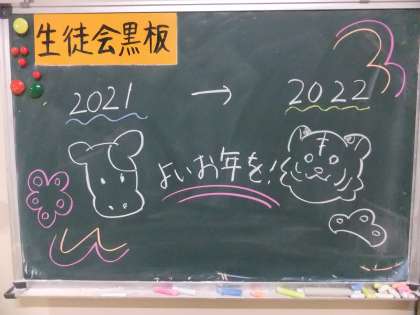 生徒会黒板
2021 → 2022
よいお年を!